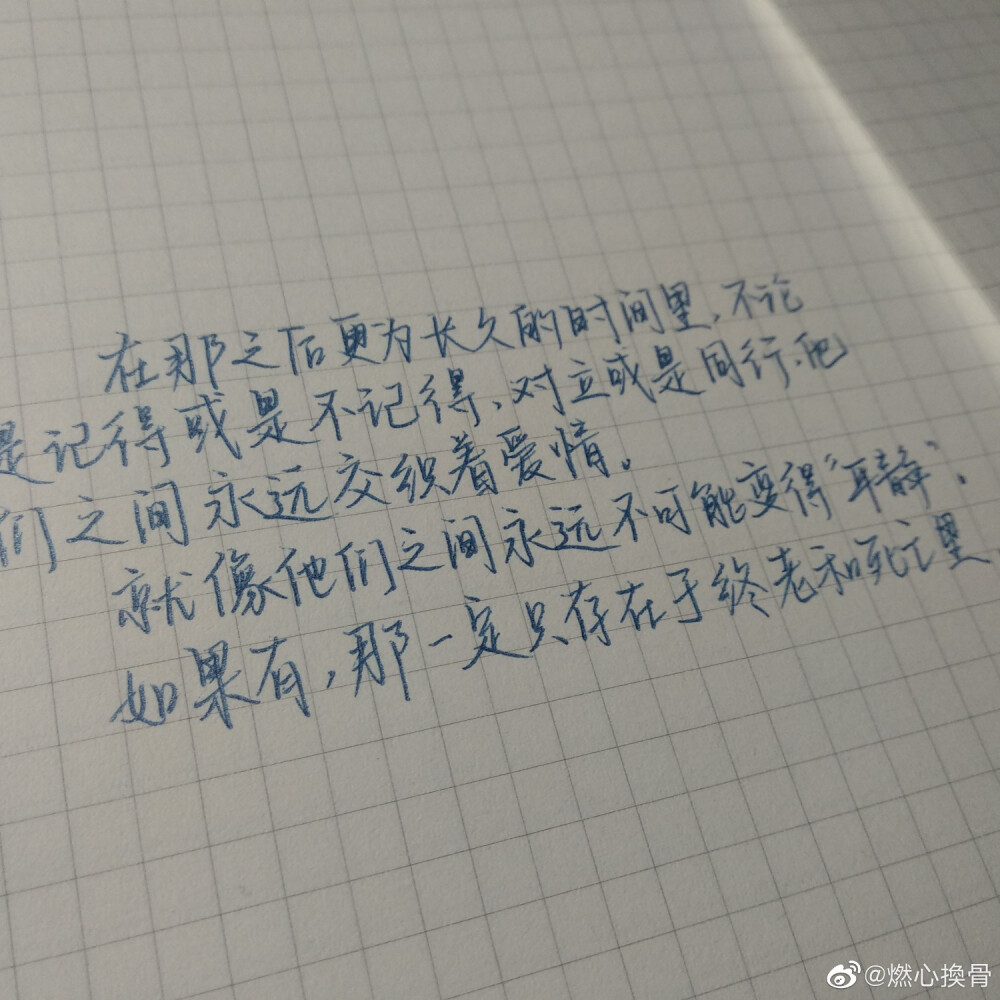 在那之后更为长久的时间里，不论
是记得或是不记得、对立或是同行，他
们之间永远交织着爱情。
就像他们之间永远不可能变得“平静”。
如果有，那一定只存在于终老和死亡里
@燃心換骨